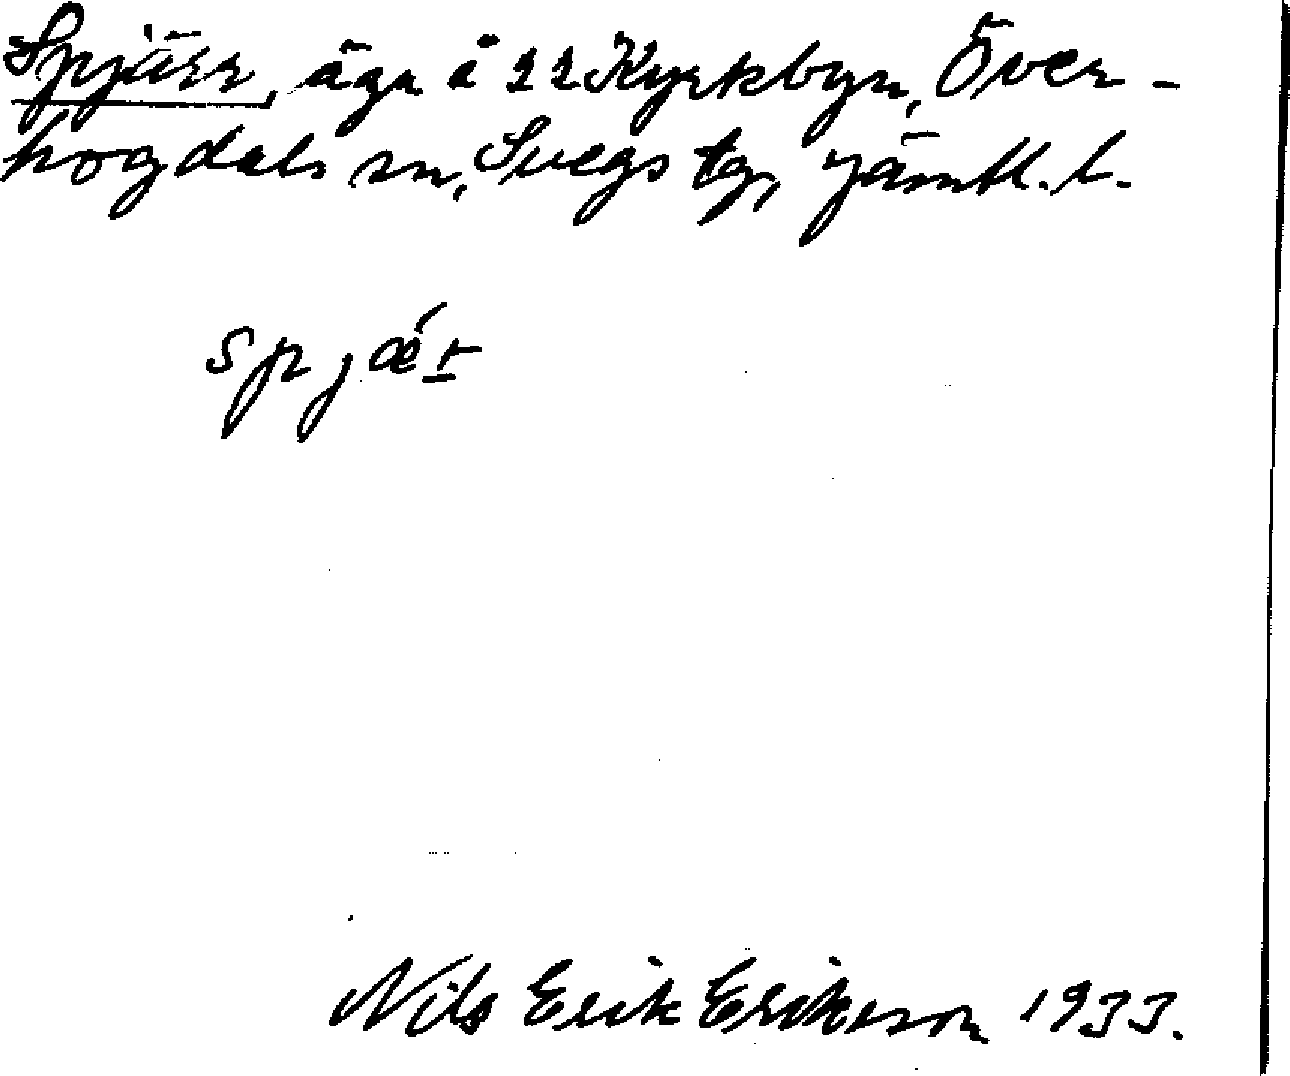 Spjärr, äga å 22 Kyrkbyn, Över-
hogdals sn, Svegs tg, Jämtl. l.
spjǽr
Nils Erik Erikson 1933.